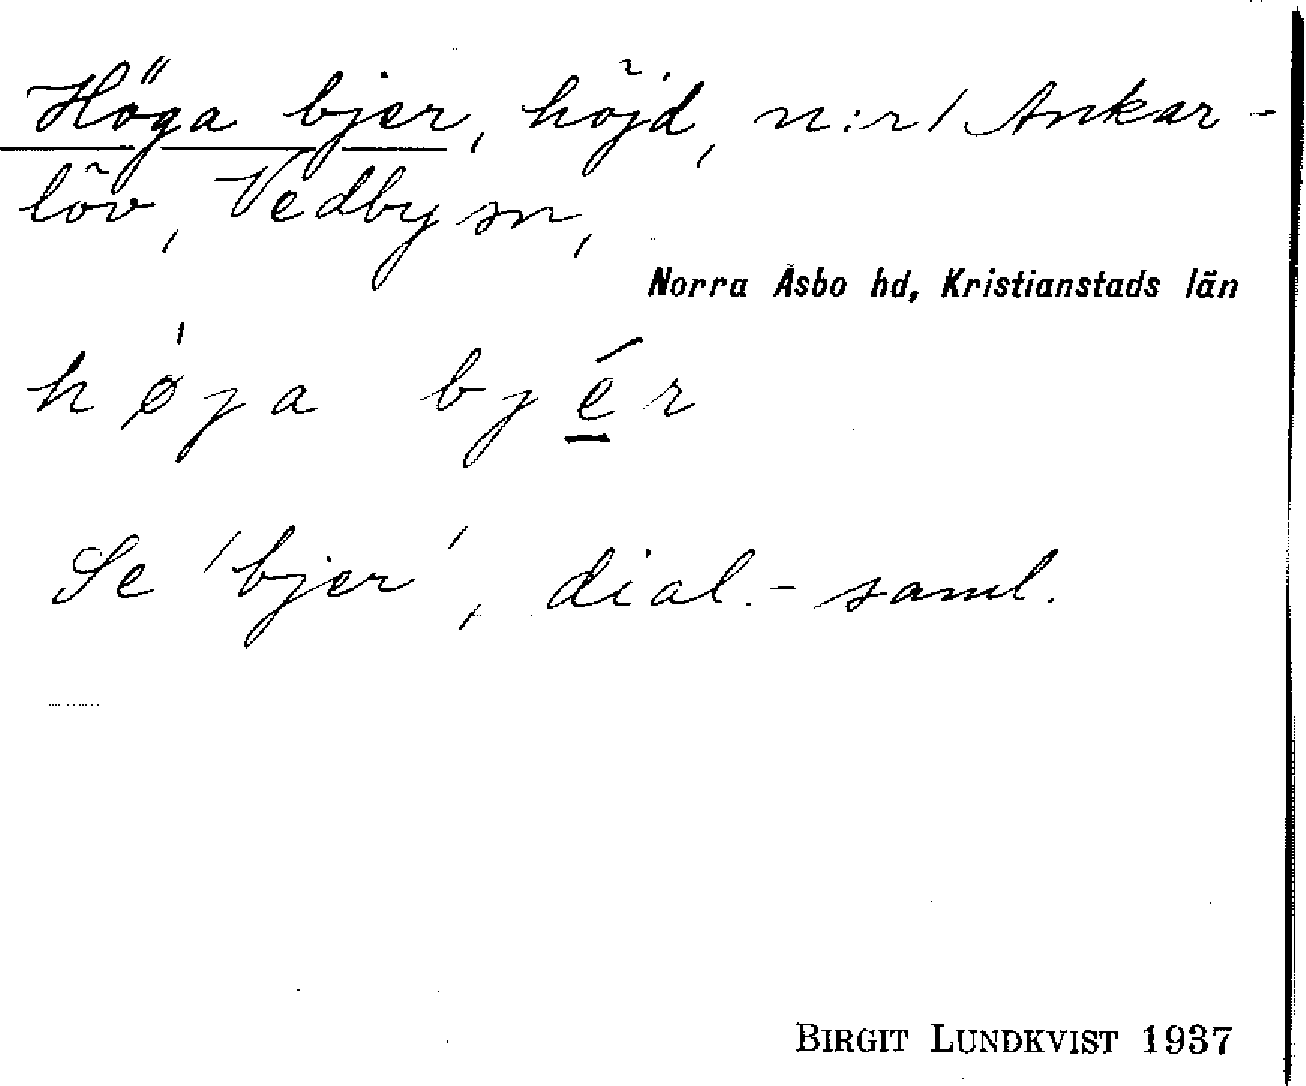 Höga bjer, höjd, n:r 1 Ankar-
löv, Vedby sn,
Norra Åsbo hd, Kristianstads län
hø'ja bjér
Se 'bjer', dial.-saml.
BIRGIT LUNDKVIST 1937